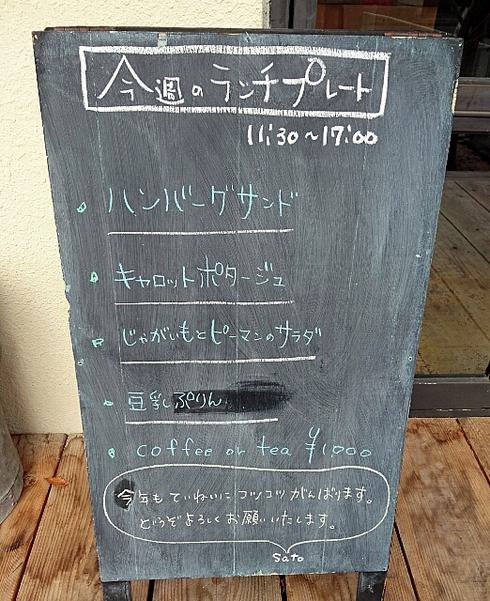 今週のランチプレート
11:30~17:00
ハンバーグサンド
キャロットポタージュ
じゃがいもとピーマンのサラダ
豆乳ぷりん
coffee or tea ¥1,000
今年もていねいにコツコツがんばります。
どうぞよろしくお願いいたします。
sato